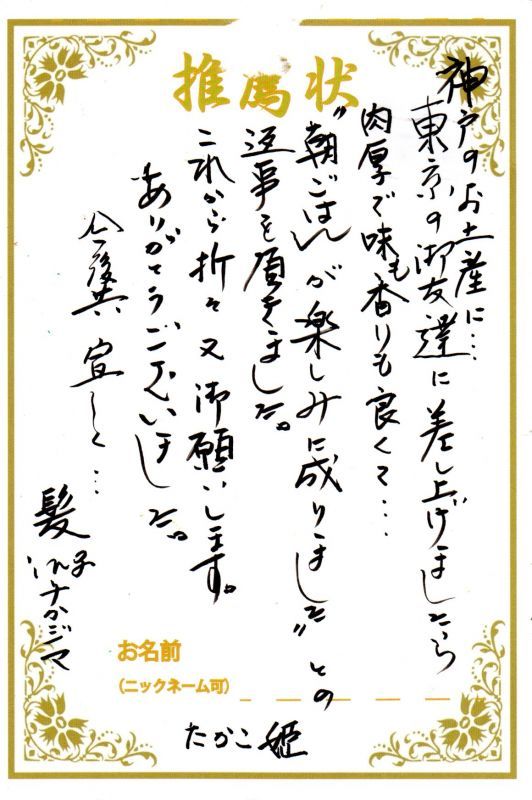 推薦状
神戸のお土産に…
東京の御友達に差し上げましたら
肉厚で味も香りも良くて…
"朝ごはんが楽しみに成りました"との
返事を頂きました。
これから折々又御願いします。
ありがとうございました。
今後共宜しく…
髪
ナカジマ
お名前
(ニックネーム可)
たかこ姫